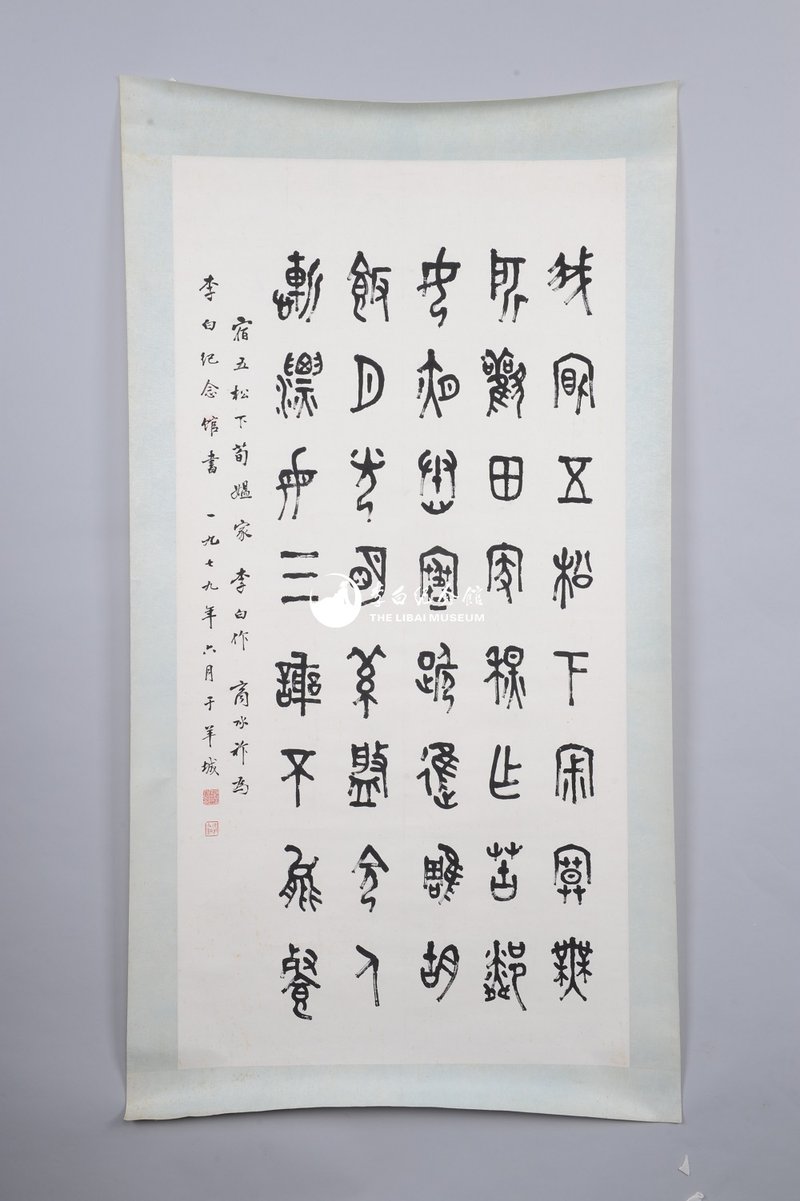 我宿五松下寂寥無
所歡田家秋作苦鄰
女夜舂寒跪進雕胡
飯月光明素盤令人
慚漂母三謝不能餐
宿五松下荀媼家 李白作 商承祚为
李白纪念馆书 一九七九年六月于羊城
李白纪念馆
THE LIBAI MUSEUM